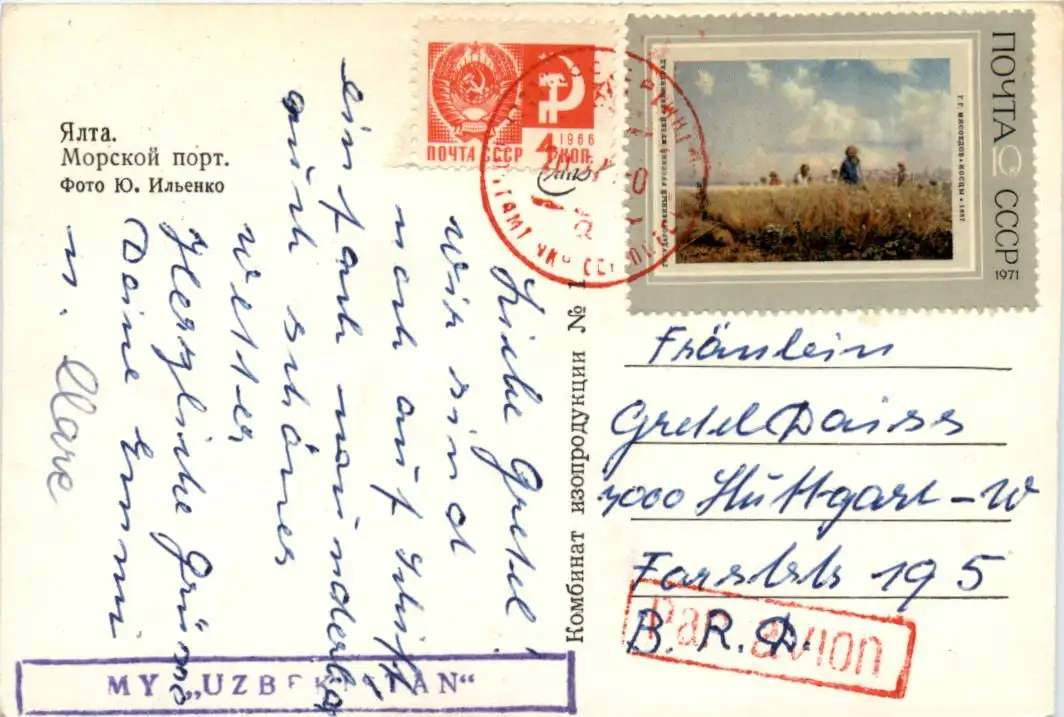 Ялта.
Морской порт.
Фото Ю. Ильенко
ПОЧТА СССР
1966
4 КОП.
ПОЧТА СССР
1971
Г.Г. МЯСОЕДОВ • КОСЦЫ • 1887
ГОСУДАРСТВЕННЫЙ РУССКИЙ МУЗЕЙ ЛЕНИНГРАД
Комбинат изопродукции № 1
Liebe Gretel!
wir sind
noch auf Schiff
einfach wunderbar
auch schönes
Wetter
Herzliche Grüsse
Deine Emmi
u. Clare
Fräulein
Gretel Daiss
7000 Stuttgart-W
195
B.R.D.
Par avion
MY „UZBEKISTAN“